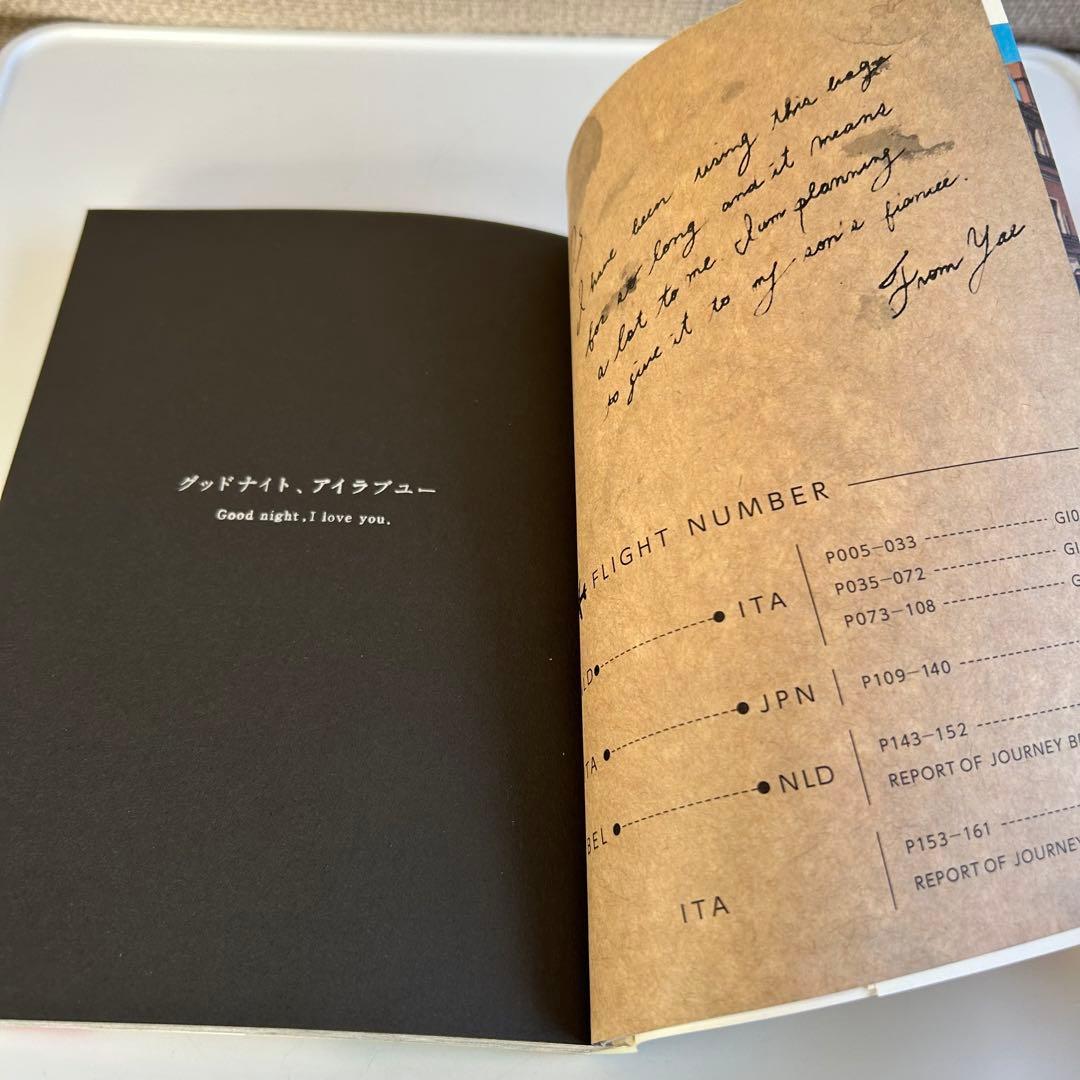 グッドナイト、アイラブユー
Good night, I love you.
I have been using this bag
for so long and it means
a lot to me I am planning
to give it to my son's fiancée.
From Yae
FLIGHT NUMBER
ITA
P005–033
P035–072
P073–108
JPN
P109–140
BEL
NLD
P143–152
REPORT OF JOURNEY
ITA
P153–161
REPORT OF JOURNEY